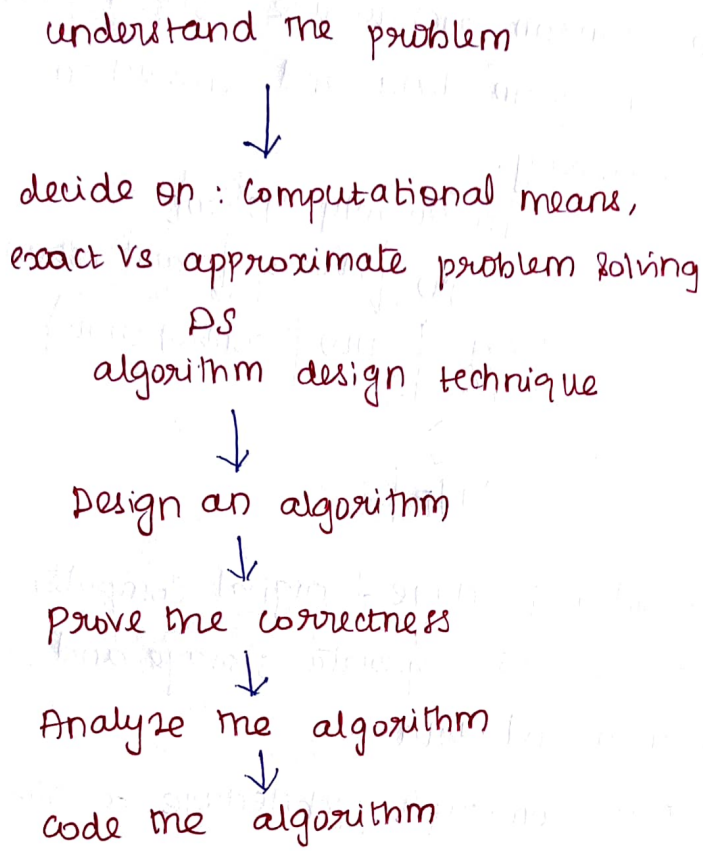 understand the problem
decide on : Computational means,
exact Vs approximate problem solving
DS
algorithm design technique
Design an algorithm
Prove the correctness
Analyze the algorithm
code the algorithm